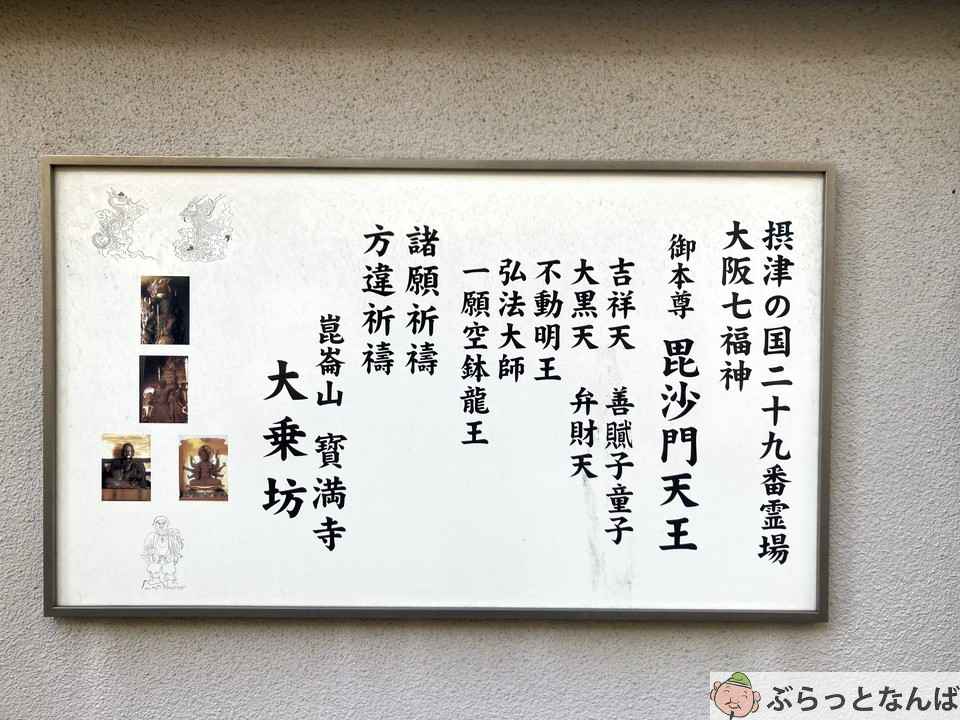 摂津の国二十九番霊場
大阪七福神
御本尊 毘沙門天王
吉祥天 善膩子童子
大黒天 弁財天
不動明王
弘法大師
一願空鉢龍王
諸願祈禱
方違祈禱
崑崙山 寶満寺
大乗坊
ぶらっとなんば